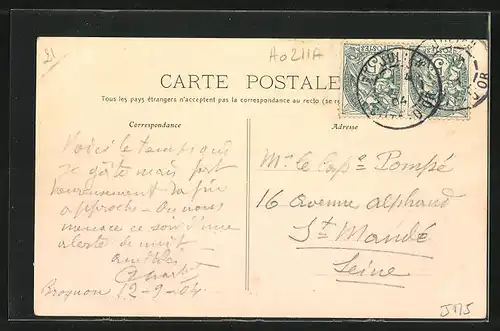 21
A0211A
CARTE POSTALE
Tous les pays étrangers n'acceptent pas la correspondance au recto (se re
Correspondance
Adresse
Voici le temps qui
se gâte mais fort
heureusement la fin
approche - On nous
menace ce soir d'une
alerte de nuit
amitiés
Brognon 12-9-04
Mr le Cape Pompé
16 avenue alphand
St Mandé
Seine
D'OR
J175